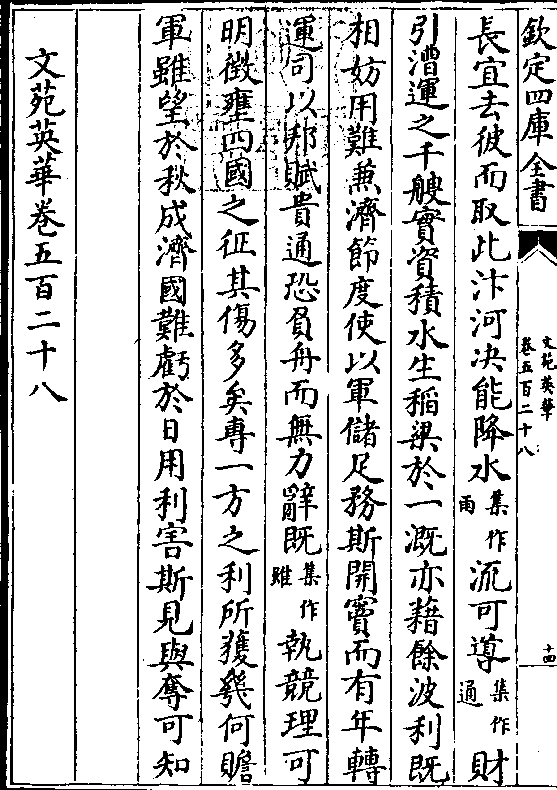 欽定四庫全書
文苑英華
卷五百二十八
十四
長宜去彼而取此汴河决能降水集作雨流可導集作通財
引漕運之千艘實資積水生稻粱於一溉亦藉餘波利既
相妨用難兼濟節度使以軍儲足務斯開竇而有年轉
運司以邦賦貴通恐負舟而無力辭既集作雖執競理可
明徵壅四國之征其傷多矣專一方之利所獲幾何贍
軍雖望於秋成濟國難虧於日用利害斯見與奪可知
文苑英華卷五百二十八